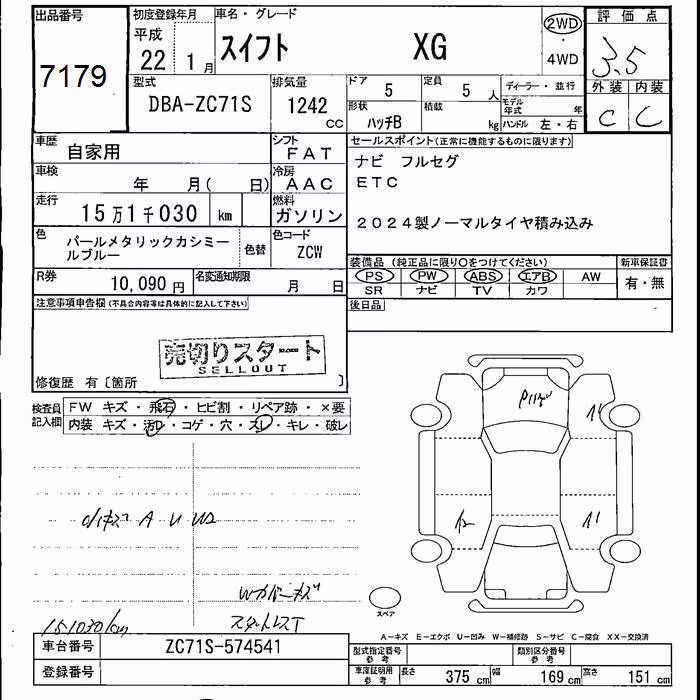 出品番号 初度登録年月 車名・グレード 2WD 評価点
7179 平成 22 1月 スイフト XG ・ 4WD 3.5
型式 排気量 ドア 定員 ディーラー・並行 外装 内装
DBA-ZC71S 1242 CC 5 5人 モデル年式 年 C C
形状 積載
ハッチB kg ハンドル 左・右
車歴 自家用 シフト FAT セールスポイント(正常に機能するものに限ります)
車検 年 月( 日) 冷房 AAC ナビ フルセグ
ETC
走行 15万1千030 km 燃料 ガソリン 2024製ノーマルタイヤ積み込み
色 パールメタリックカシミールブルー 色替 色コード ZCW
装備品(純正品に限り○をつけてください) 新車保証書
R券 10,090円 名変通知期限 月 日 PS PW ABS エアB AW 有・無
SR ナビ TV カワ
注意事項申告欄(不具合内容等は具体的に記入して下さい) 後日品
売切りスタート
SELLOUT
修復歴 有〔箇所 〕
検査員記入欄 FW キズ・飛石・ヒビ割・リペア跡・×要
内装 キズ・汚れ・コゲ・穴・スレ・キレ・破レ
A U W2
151030km
スペア
A−キズ E−エクボ U−凹み W−補修跡 S−サビ C−腐食 XX−交換済
車台番号 ZC71S-574541 型式指定番号 参考 類別区分番号 参考
登録番号 車庫証明用 参考 長さ 375 cm 幅 169 cm 高さ 151 cm